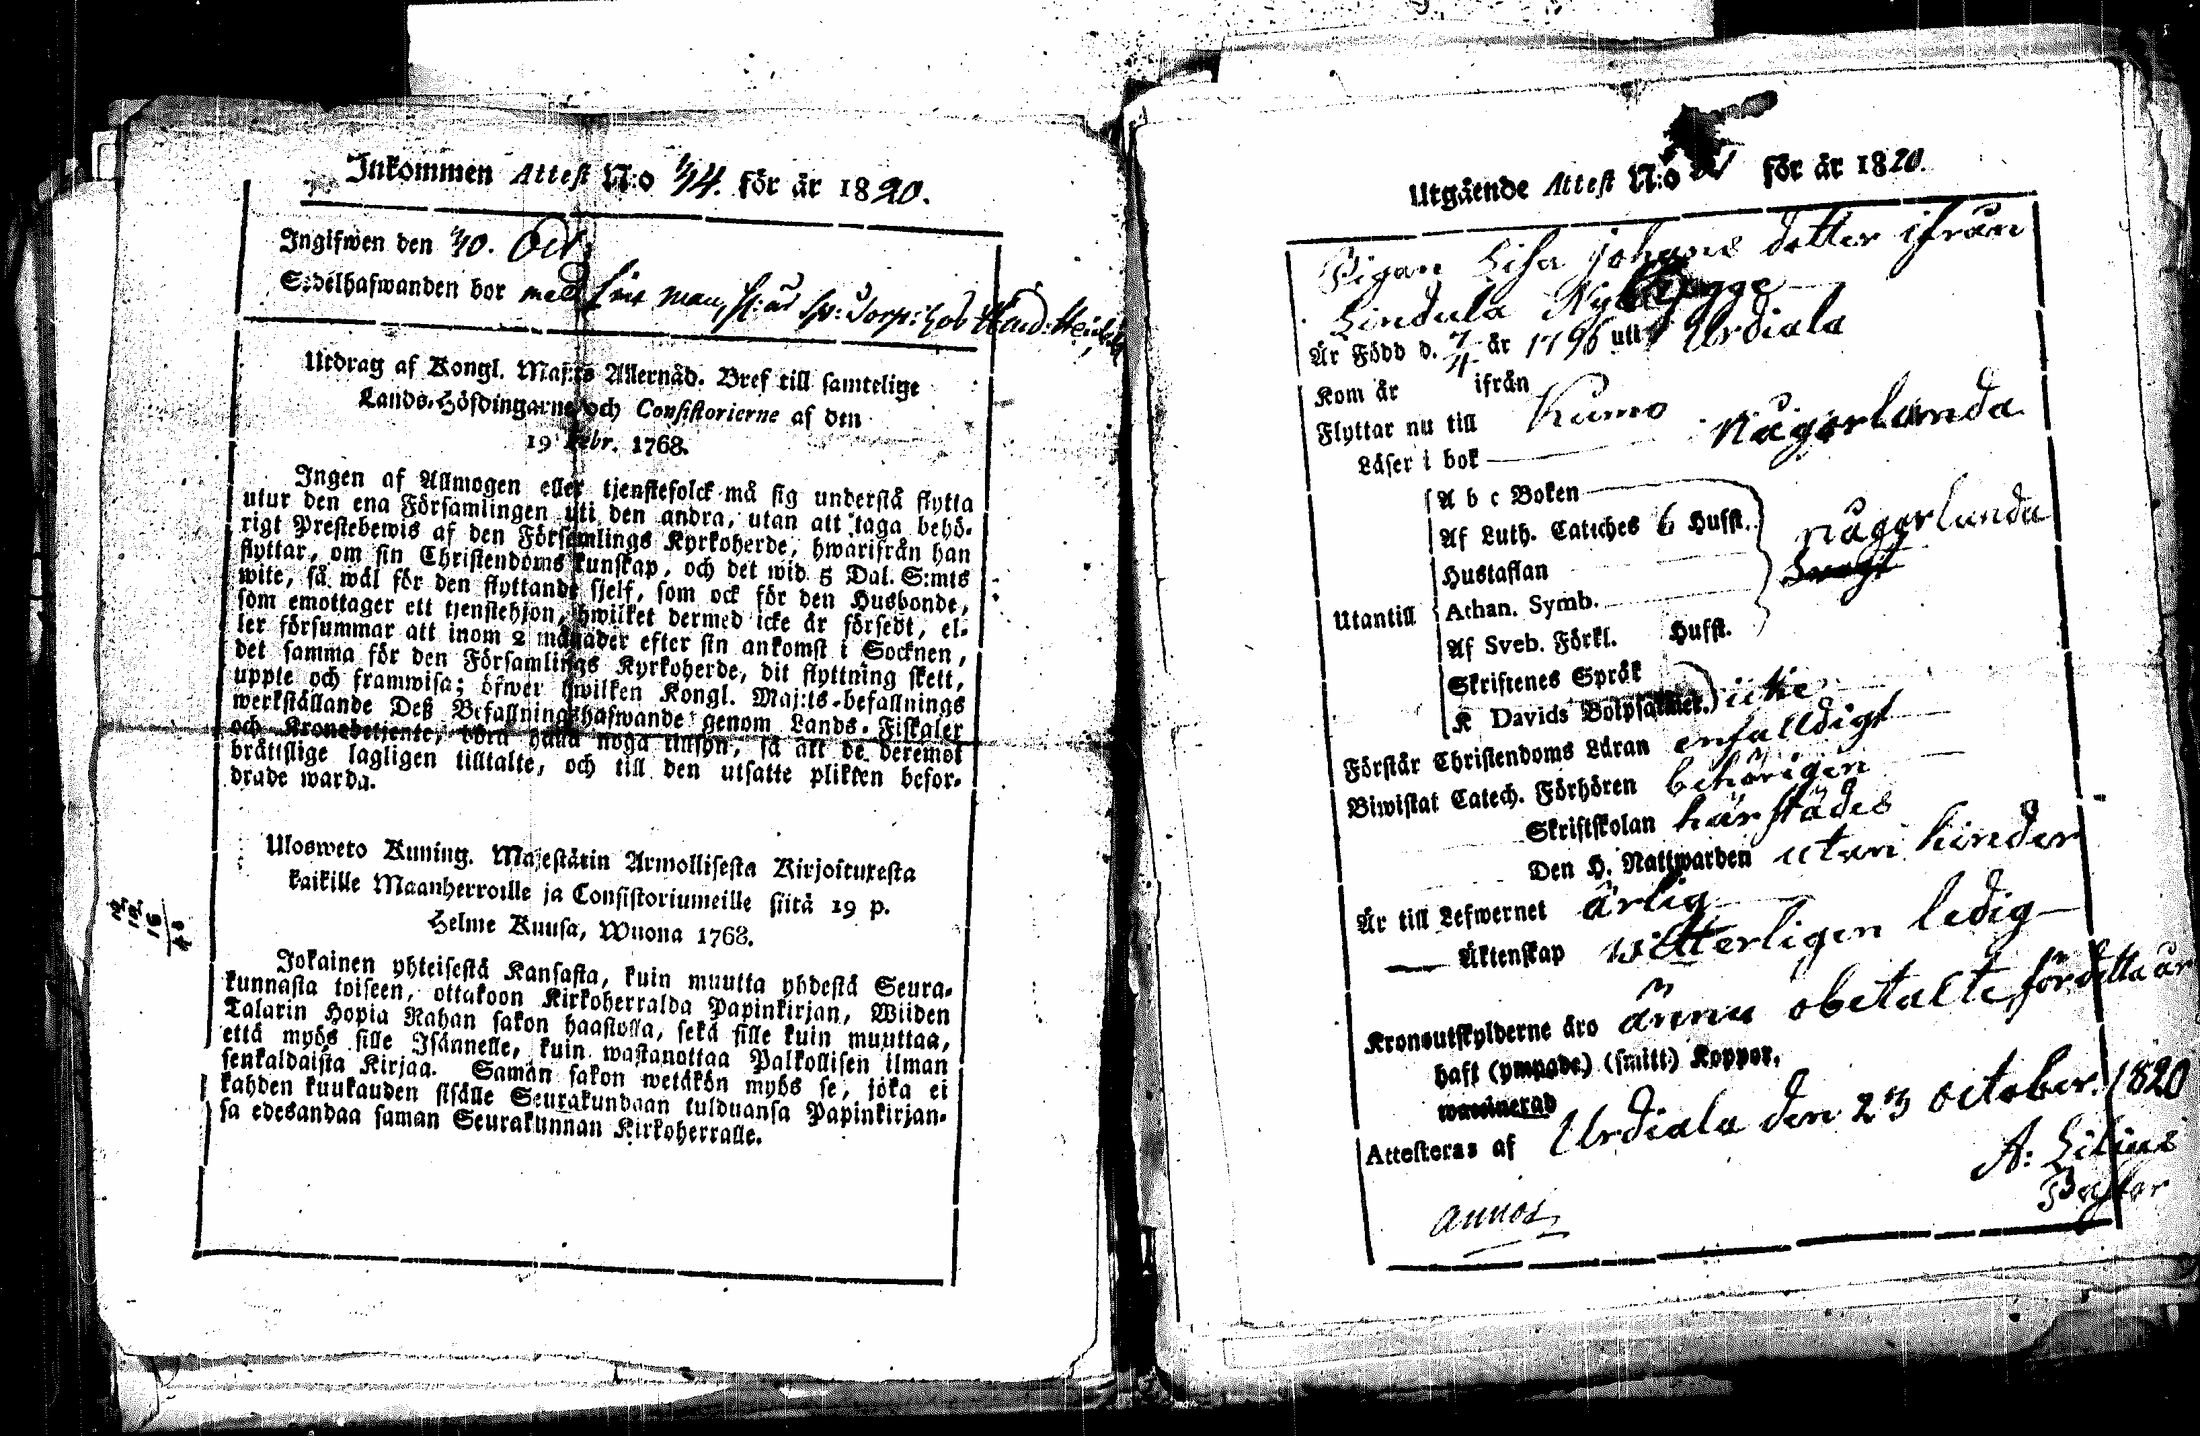 Inkommen Attest N:o 14. för år 1820.
Ingifwen den 30. Oct.
Sedelhafwanden bor med sin man,
Utdrag af Kongl. Maj:ts Allernåd. Bref till samtelige
Lands-Höfdingarne och Consistorierne af den
19 Febr. 1768.
Ingen af Allmogen eller tjenstefolck må sig understå flytta
utur den ena Församlingen uti den andra, utan att taga behö-
rigt Prestebewis af den Församlings Kyrkoherde, hwarifrån han
flyttar, om sin Christendoms kunskap, och det wid 5 Dal. S:mts
wite, så wäl för den flyttande sjelf, som ock för den Husbonde,
som emottager ett tjenstehjon, hwilket dermed icke är försedt, el-
ler försummar att inom 2 månader efter sin ankomst i Socknen,
det samma för den Församlings Kyrkoherde, dit flyttning skett,
uppte och framwisa; öfwer hwilken Kongl. Maj:ts befallnings
werkställande Deß Befallningshafwande genom Lands-Fiskaler
och Kronobetjente, böra hålla noga tillsyn, så att de deremot
bråttslige lagligen tilltalte, och till den utsatte plikten befor-
drade warda.
Ulosweto Kuning. Majestätin Armollisesta Kirjoituxesta
kaikille Maanherroille ja Consistoriumeille siitä 19 p.
Helme Kuusa, Wuona 1768.
Jokainen yhteisestä Kansasta, kuin muutta yhdestä Seura-
kunnasta toiseen, ottakoon Kirkoherralda Papinkirjan, Wiiden
Talarin Hopia Rahan sakon haastolla, sekä sille kuin muuttaa,
että myös sille Isännelle, kuin wastanottaa Palkollisen ilman
senkaldaista Kirjaa. Saman sakon wetäkön myös se, joka ei
kahden kuukauden sisälle Seurakundaan tulduansa Papinkirjan-
sa edesandaa saman Seurakunnan Kirkoherralle.
Utgående Attest N:o för år 1820.
Pigan Lisa Johans dotter ifrån
Lindula
Är Född d. 7/4 år 1796 uti Urdiala
Kom år ifrån
Flyttar nu till Kumo
Läser i bok någorlunda
A b c Boken
Af Luth. Catiches 6 Hufst. någorlunda
Hustaflan
Utantill Athan. Symb.
Af Sveb. Förkl. Hufst.
Skriftenes Språk
K Davids Botpsalmer. icke
Förstår Christendoms Läran enfalldigt
Biwistat Catech. Förhören behörigen
Skriftskolan härstädes
Den H. Nattwarden utan hinder
Är till Lefwernet ärlig
Äktenskap witterligen ledig
Kronoutskylderne äro ännu obetalte för detta år
haft (ympade) (smitt) Koppor.
waccinerad
Attesteras af Urdiala den 23 October 1820
A: Lilius
Pastor